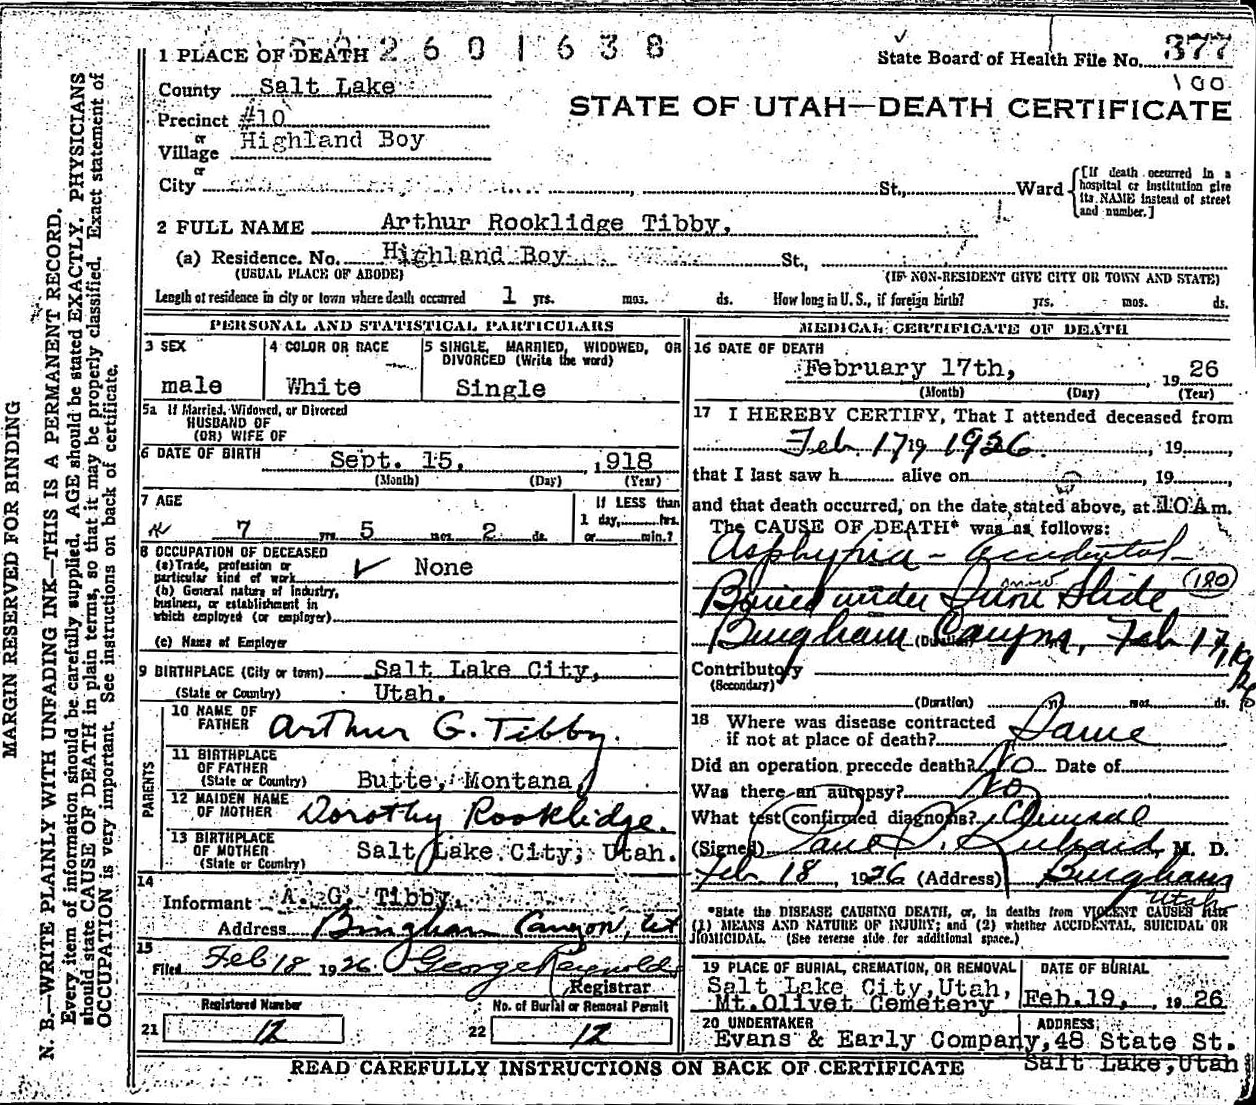 2601638
State Board of Health File No. 377
100
1 PLACE OF DEATH
County Salt Lake
STATE OF UTAH—DEATH CERTIFICATE
Precinct #10
or
Village Highland Boy
or
City St., Ward
[If death occurred in a hospital or institution give its NAME instead of street and number.]
2 FULL NAME Arthur Rooklidge Tibby.
(a) Residence. No. Highland Boy St.,
(USUAL PLACE OF ABODE) (IF NON-RESIDENT GIVE CITY OR TOWN AND STATE)
Length of residence in city or town where death occurred 1 yrs. mos. ds. How long in U. S., if foreign birth? yrs. mos. ds.
PERSONAL AND STATISTICAL PARTICULARS
3 SEX
male
4 COLOR OR RACE
White
5 SINGLE, MARRIED, WIDOWED, OR DIVORCED (Write the word)
Single
5a If Married, Widowed, or Divorced
HUSBAND OF
(OR) WIFE OF
6 DATE OF BIRTH Sept. 15, 1918
(Month) (Day) (Year)
7 AGE
7 yrs. 5 mos. 2 ds.
If LESS than
1 day, hrs.
or min.?
8 OCCUPATION OF DECEASED
(a) Trade, profession or
particular kind of work None
(b) General nature of industry,
business, or establishment in
which employed (or employer)
(c) Name of Employer
9 BIRTHPLACE (City or town) Salt Lake City,
(State or Country) Utah.
PARENTS
10 NAME OF
FATHER Arthur G. Tibby.
11 BIRTHPLACE
OF FATHER
(State or Country) Butte, Montana
12 MAIDEN NAME
OF MOTHER Dorothy Rooklidge.
13 BIRTHPLACE
OF MOTHER
(State or Country) Salt Lake City, Utah.
14
Informant A. G. Tibby
Address Bingham Canyon, Ut
15
Filed Feb 18 1926. George Reynolds
Registrar
Registered Number No. of Burial or Removal Permit
21 12 22 12
MEDICAL CERTIFICATE OF DEATH
16 DATE OF DEATH
February 17th, 1926
(Month) (Day) (Year)
17 I HEREBY CERTIFY, That I attended deceased from
Feb. 17 19 1926. , 19
that I last saw h alive on , 19
and that death occurred, on the date stated above, at 10A m.
The CAUSE OF DEATH* was as follows:
Asphyxia - accidental -
Buried under Snow Slide (180)
Bingham Canyon, Feb 17, 1926
(Duration)
Contributory
(Secondary)
(Duration) mos. ds.
18 Where was disease contracted
if not at place of death? Same
Did an operation precede death? No Date of
Was there an autopsy? No
What test confirmed diagnosis? Clinical
(Signed) Paul S. Richards, M. D.
Feb 18, 1926 (Address) Bingham
Utah
*State the DISEASE CAUSING DEATH, or, in deaths from VIOLENT CAUSES state
(1) MEANS AND NATURE OF INJURY; and (2) whether ACCIDENTAL, SUICIDAL OR
HOMICIDAL. (See reverse side for additional space.)
19 PLACE OF BURIAL, CREMATION, OR REMOVAL
Salt Lake City, Utah,
Mt.Olivet Cemetery
DATE OF BURIAL
Feb.19, 1926
20 UNDERTAKER
Evans & Early Company,
ADDRESS
48 State St.
Salt Lake, Utah
READ CAREFULLY INSTRUCTIONS ON BACK OF CERTIFICATE
MARGIN RESERVED FOR BINDING
N. B.—WRITE PLAINLY WITH UNFADING INK—THIS IS A PERMANENT RECORD.
Every item of information should be carefully supplied. AGE should be stated EXACTLY. PHYSICIANS
should state CAUSE OF DEATH in plain terms, so that it may be properly classified. Exact statement of
OCCUPATION is very important. See instructions on back of certificate.